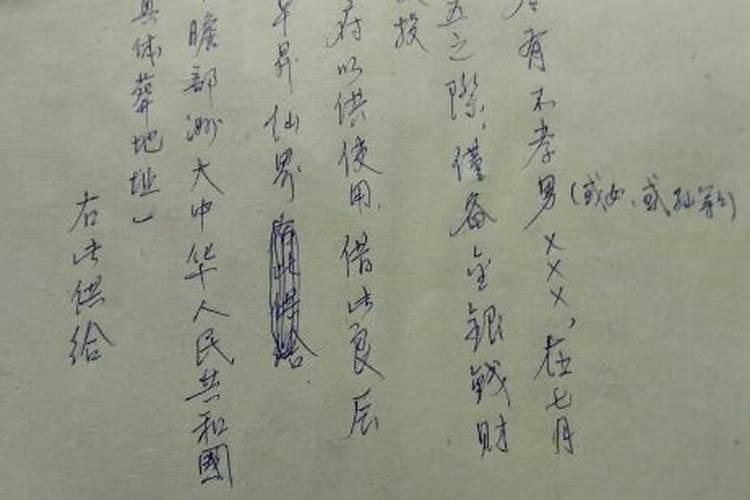 有不孝男×××,在七月
(或女、或孙等)
五之际,僅备金銀钱财
投
府以供使用,借此良辰
早昇仙界
瞻部洲大中华人民共和國
具体葬地址)
右此供给